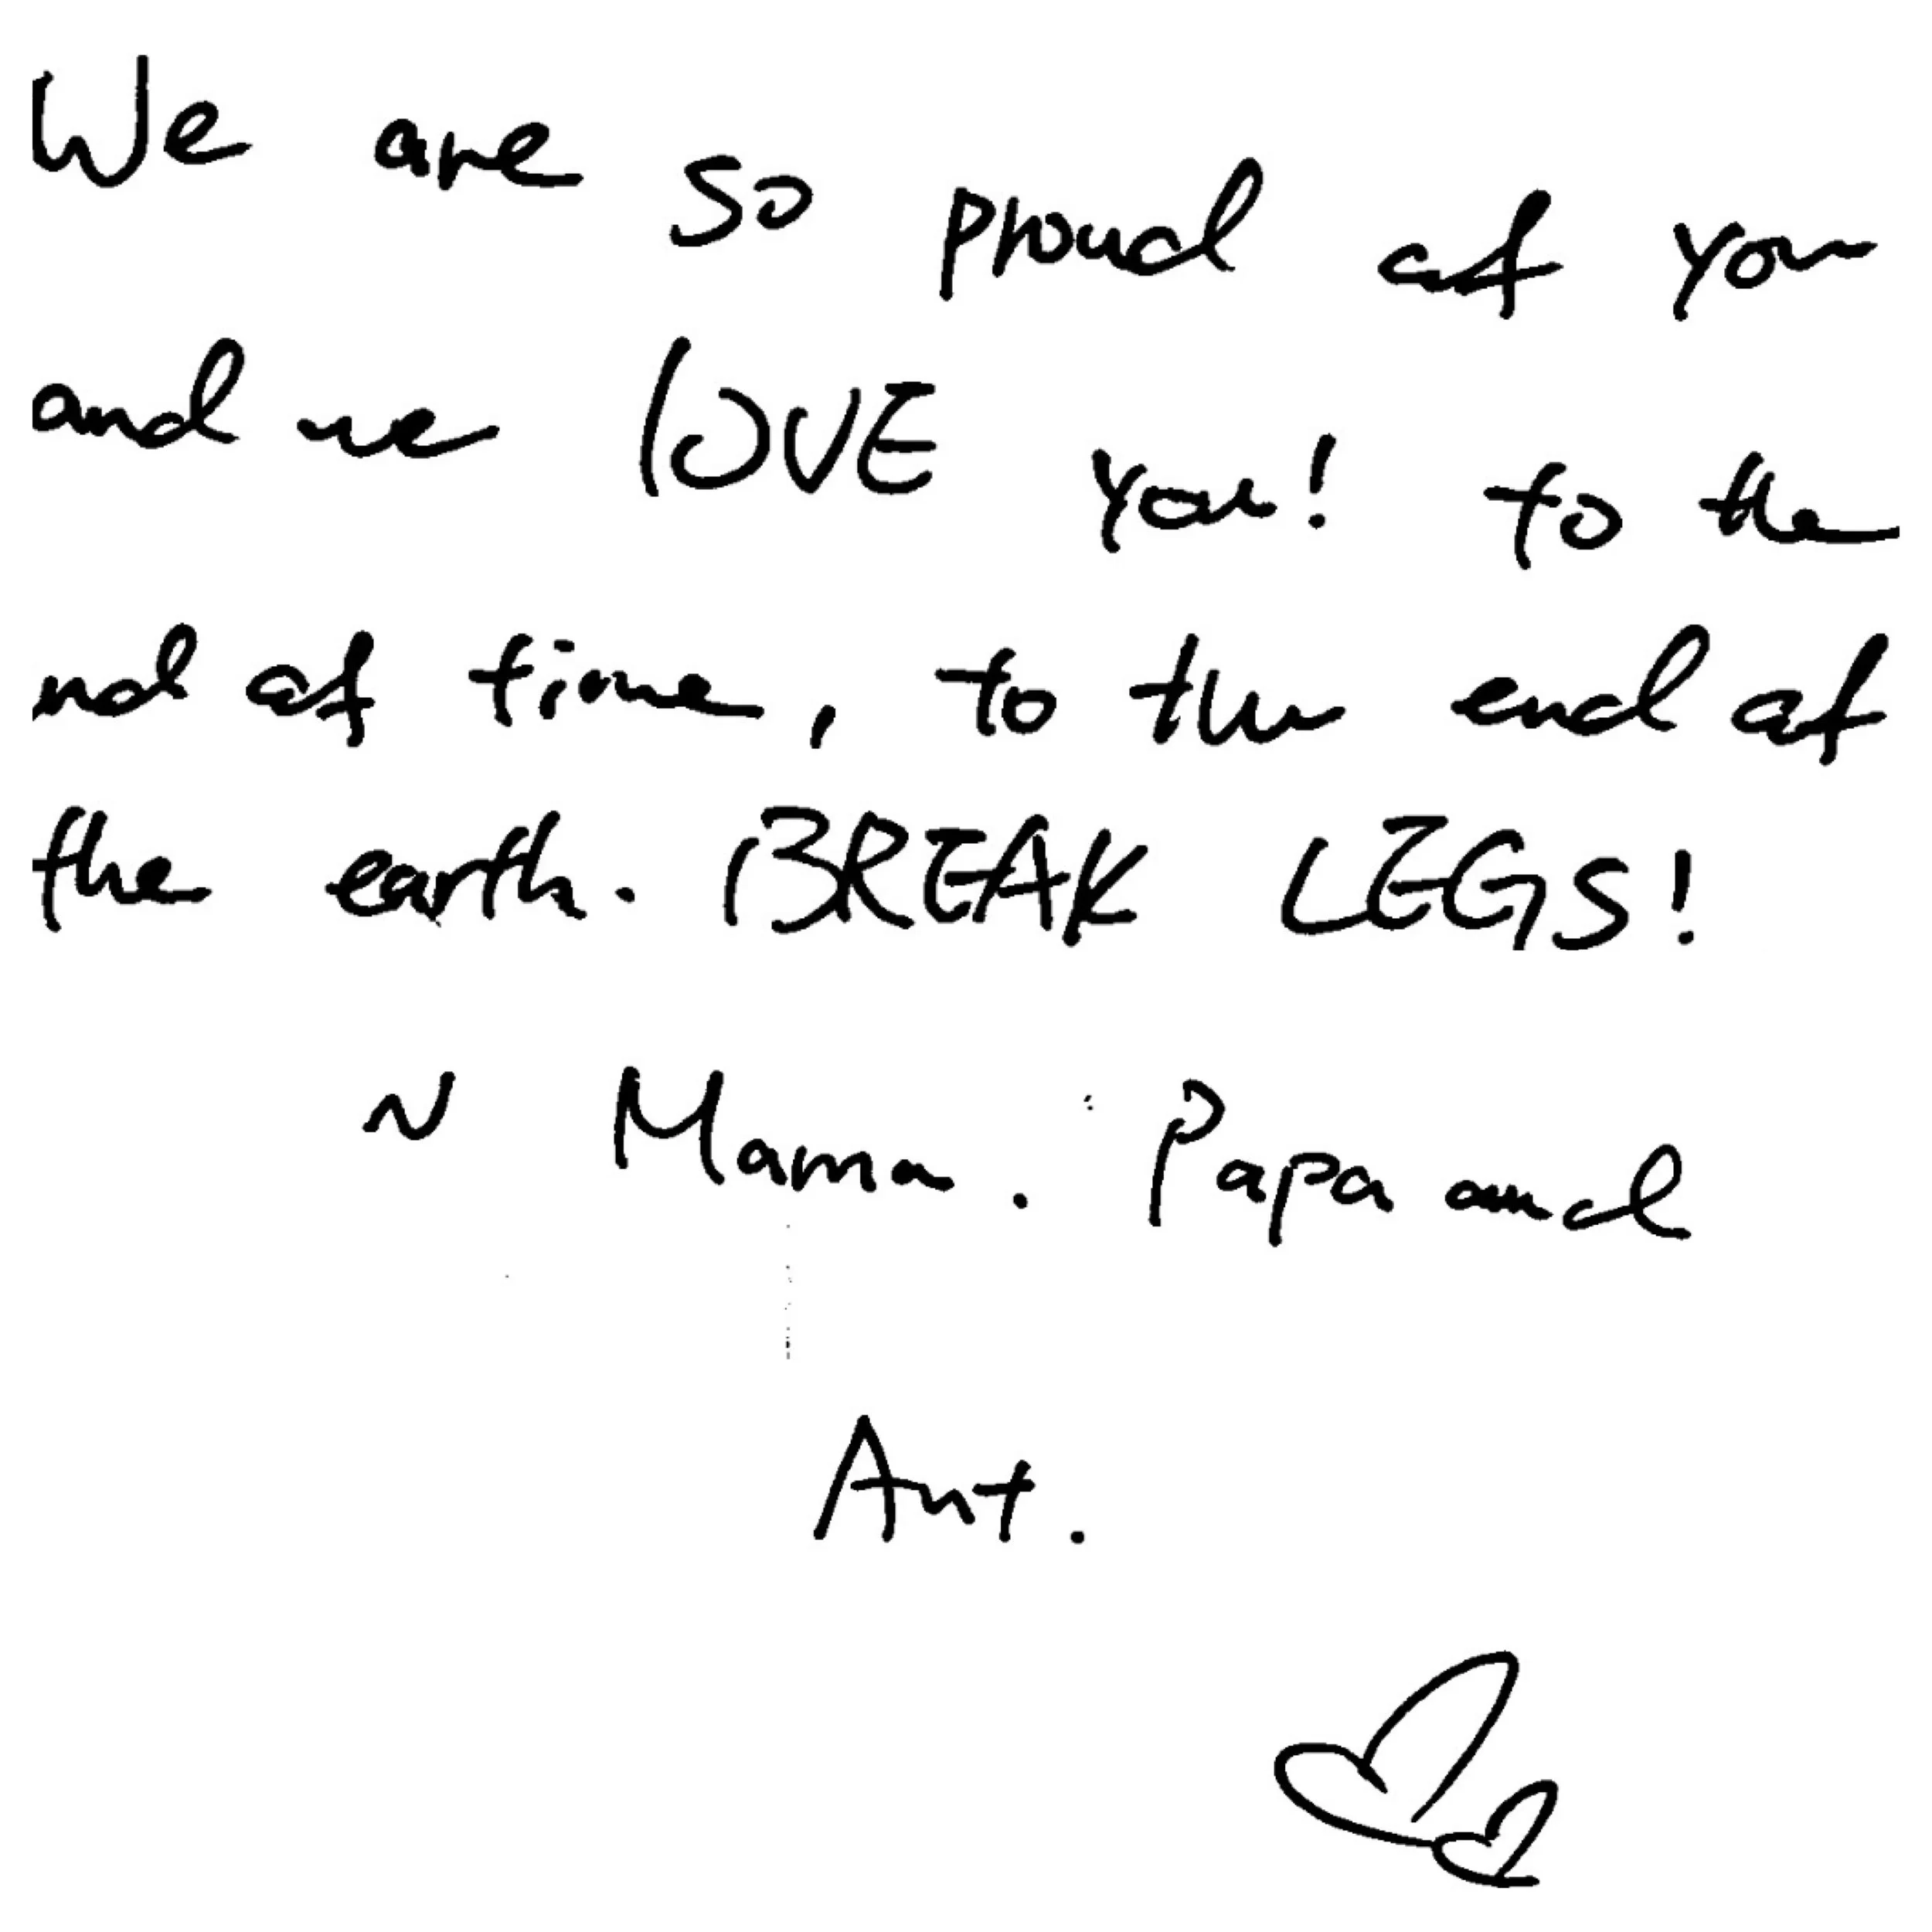 We are so proud of you
and we lOVE you! to the
nd of time, to the end of
the earth. BREAK LEGS!
~ Mama. Papa and
Ant.